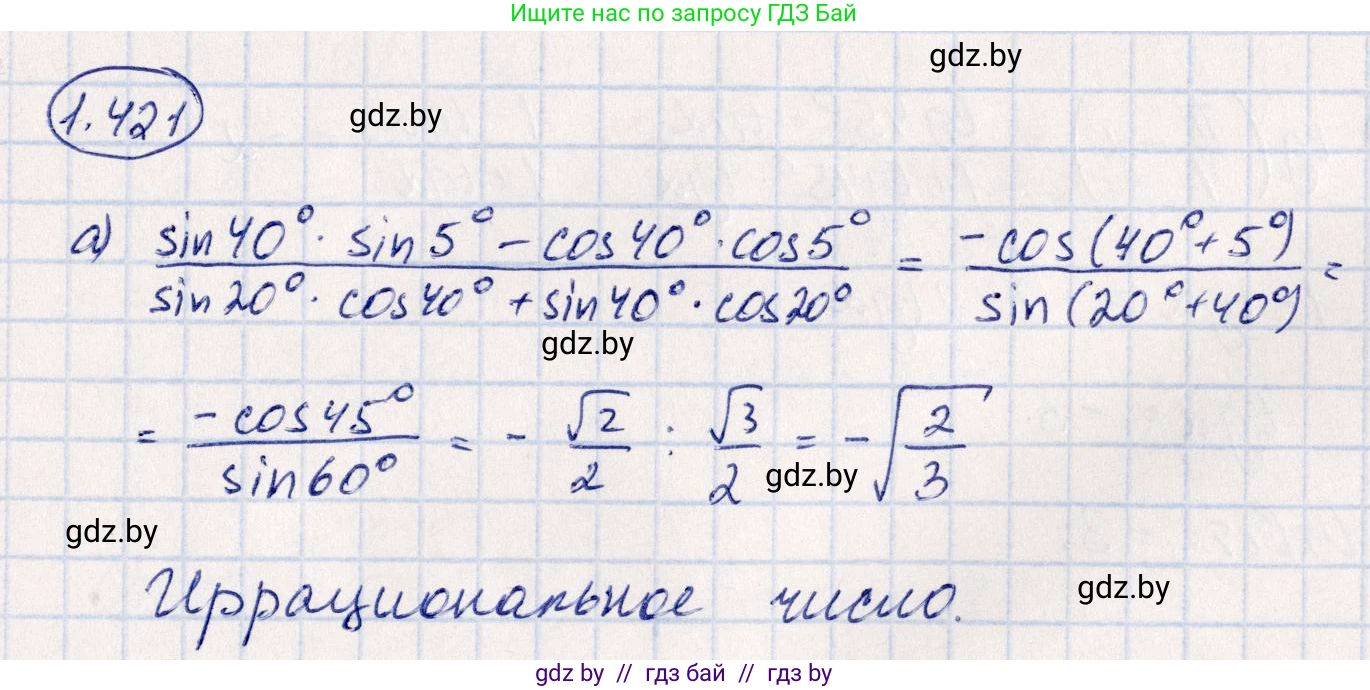 Ищите нас по запросу ГДЗ Бай
gdz.by
1.421 gdz.by
а) (sin40° · sin5° − cos40° · cos5°) / (sin20° · cos40° + sin40° · cos20°) = −cos(40° + 5°) / sin(20° + 40°) =
gdz.by
= −cos45° / sin60° = − √2/2 : √3/2 = −√(2/3)
gdz.by
gdz.by
Иррациональное число.
gdz.by
gdz.by // гдз бай // гдз by